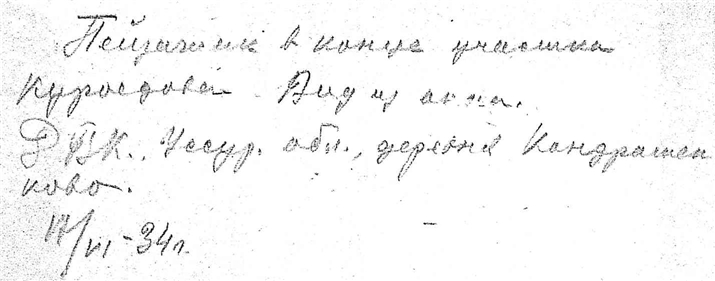 Пейзажик в конце участка
Куроедова Вид из окна.
ДВК., Уссур. обл., деревня Кондрашен
ково.
17/VI-34г.